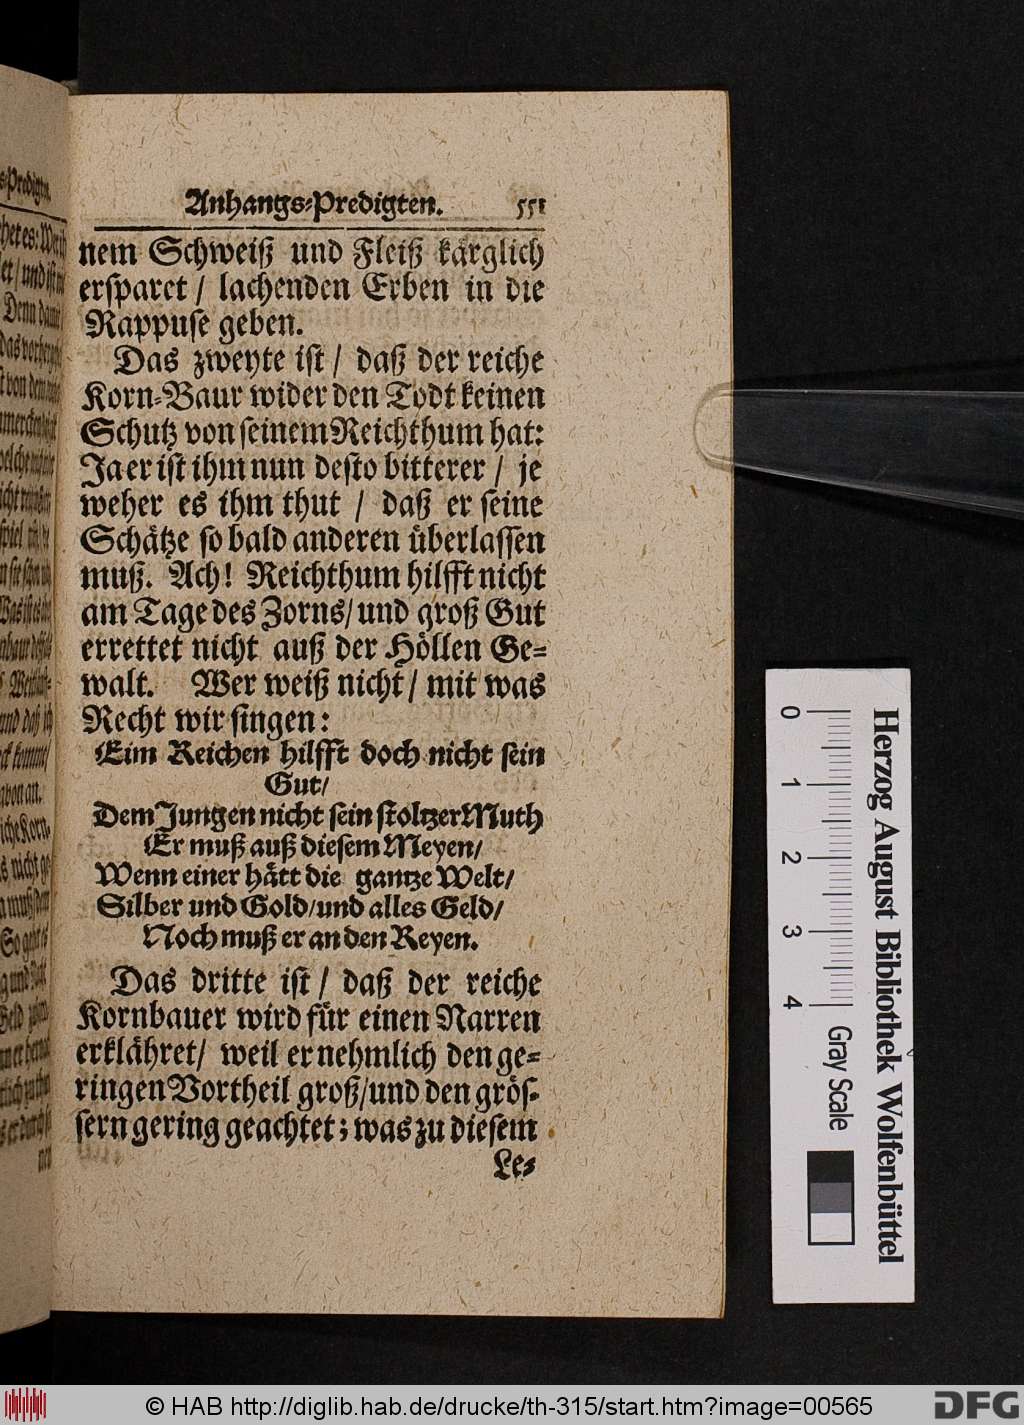 Anhangs-Predigten. 551
nem Schweiß und Fleiß kärglich
ersparet / lachenden Erben in die
Rappuse geben.
Das zweyte ist / daß der reiche
Korn-Baur wider den Todt keinen
Schutz von seinem Reichthum hat:
Ja er ist ihm nun desto bitterer / je
weher es ihm thut / daß er seine
Schätze so bald anderen überlassen
muß. Ach! Reichthum hilfft nicht
am Tage des Zorns/ und groß Gut
errettet nicht auß der Höllen Ge-
walt. Wer weiß nicht / mit was
Recht wir singen:
Eim Reichen hilfft doch nicht sein
Gut/
Dem Jungen nicht sein stoltzer Muth
Er muß auß diesem Meyen/
Wenn einer hätt die gantze Welt/
Silber und Gold/und alles Geld/
Noch muß er an den Reyen.
Das dritte ist / daß der reiche
Kornbauer wird für einen Narren
erklähret/ weil er nehmlich den ge-
ringen Vortheil groß/und den grös-
sern gering geachtet; was zu diesem
Le-
Herzog August Bibliothek Wolfenbüttel
0 1 2 3 4 Gray Scale
© HAB http://diglib.hab.de/drucke/th-315/start.htm?image=00565
DFG